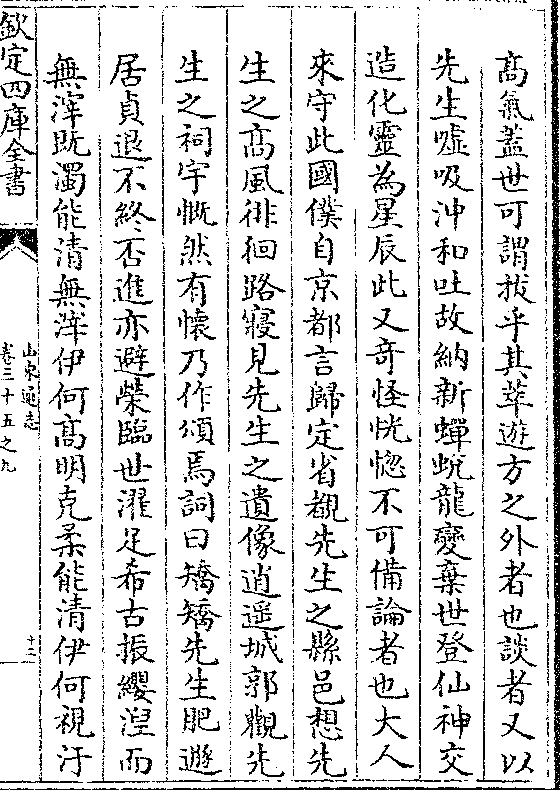 高氣蓋世可謂拔乎其萃遊方之外者也談者又以
先生噓吸沖和吐故納新蟬蛻龍變棄世登仙神交
造化靈為星辰此又奇怪恍惚不可備論者也大人
來守此國僕自京都言歸定省覩先生之縣邑想先
生之高風徘徊路寢見先生之遺像逍遥城郭觀先
生之祠宇慨然有懷乃作頌焉詞曰矯矯先生肥遯
居貞退不終否進亦避榮臨世濯足希古振纓涅而
無滓既濁能清無滓伊何高明克柔能清伊何視汙
欽定四庫全書
山東通志
卷三十五之九
十二